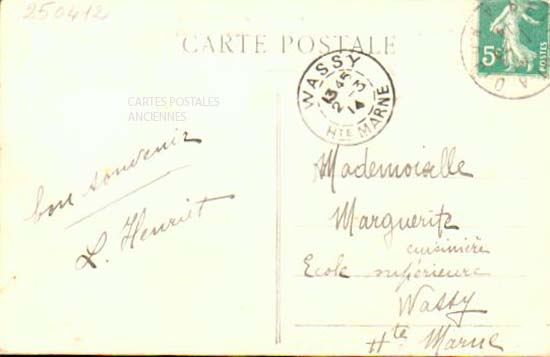 250412
CARTE POSTALE
5c
POSTES
WASSY
13 45
2-3
14
HTE MARNE
CARTES POSTALES
ANCIENNES
bon souvenir
L. Henriet
Mademoiselle
Marguerite
cuisinière
Ecole supérieure
Wassy
Hte Marne